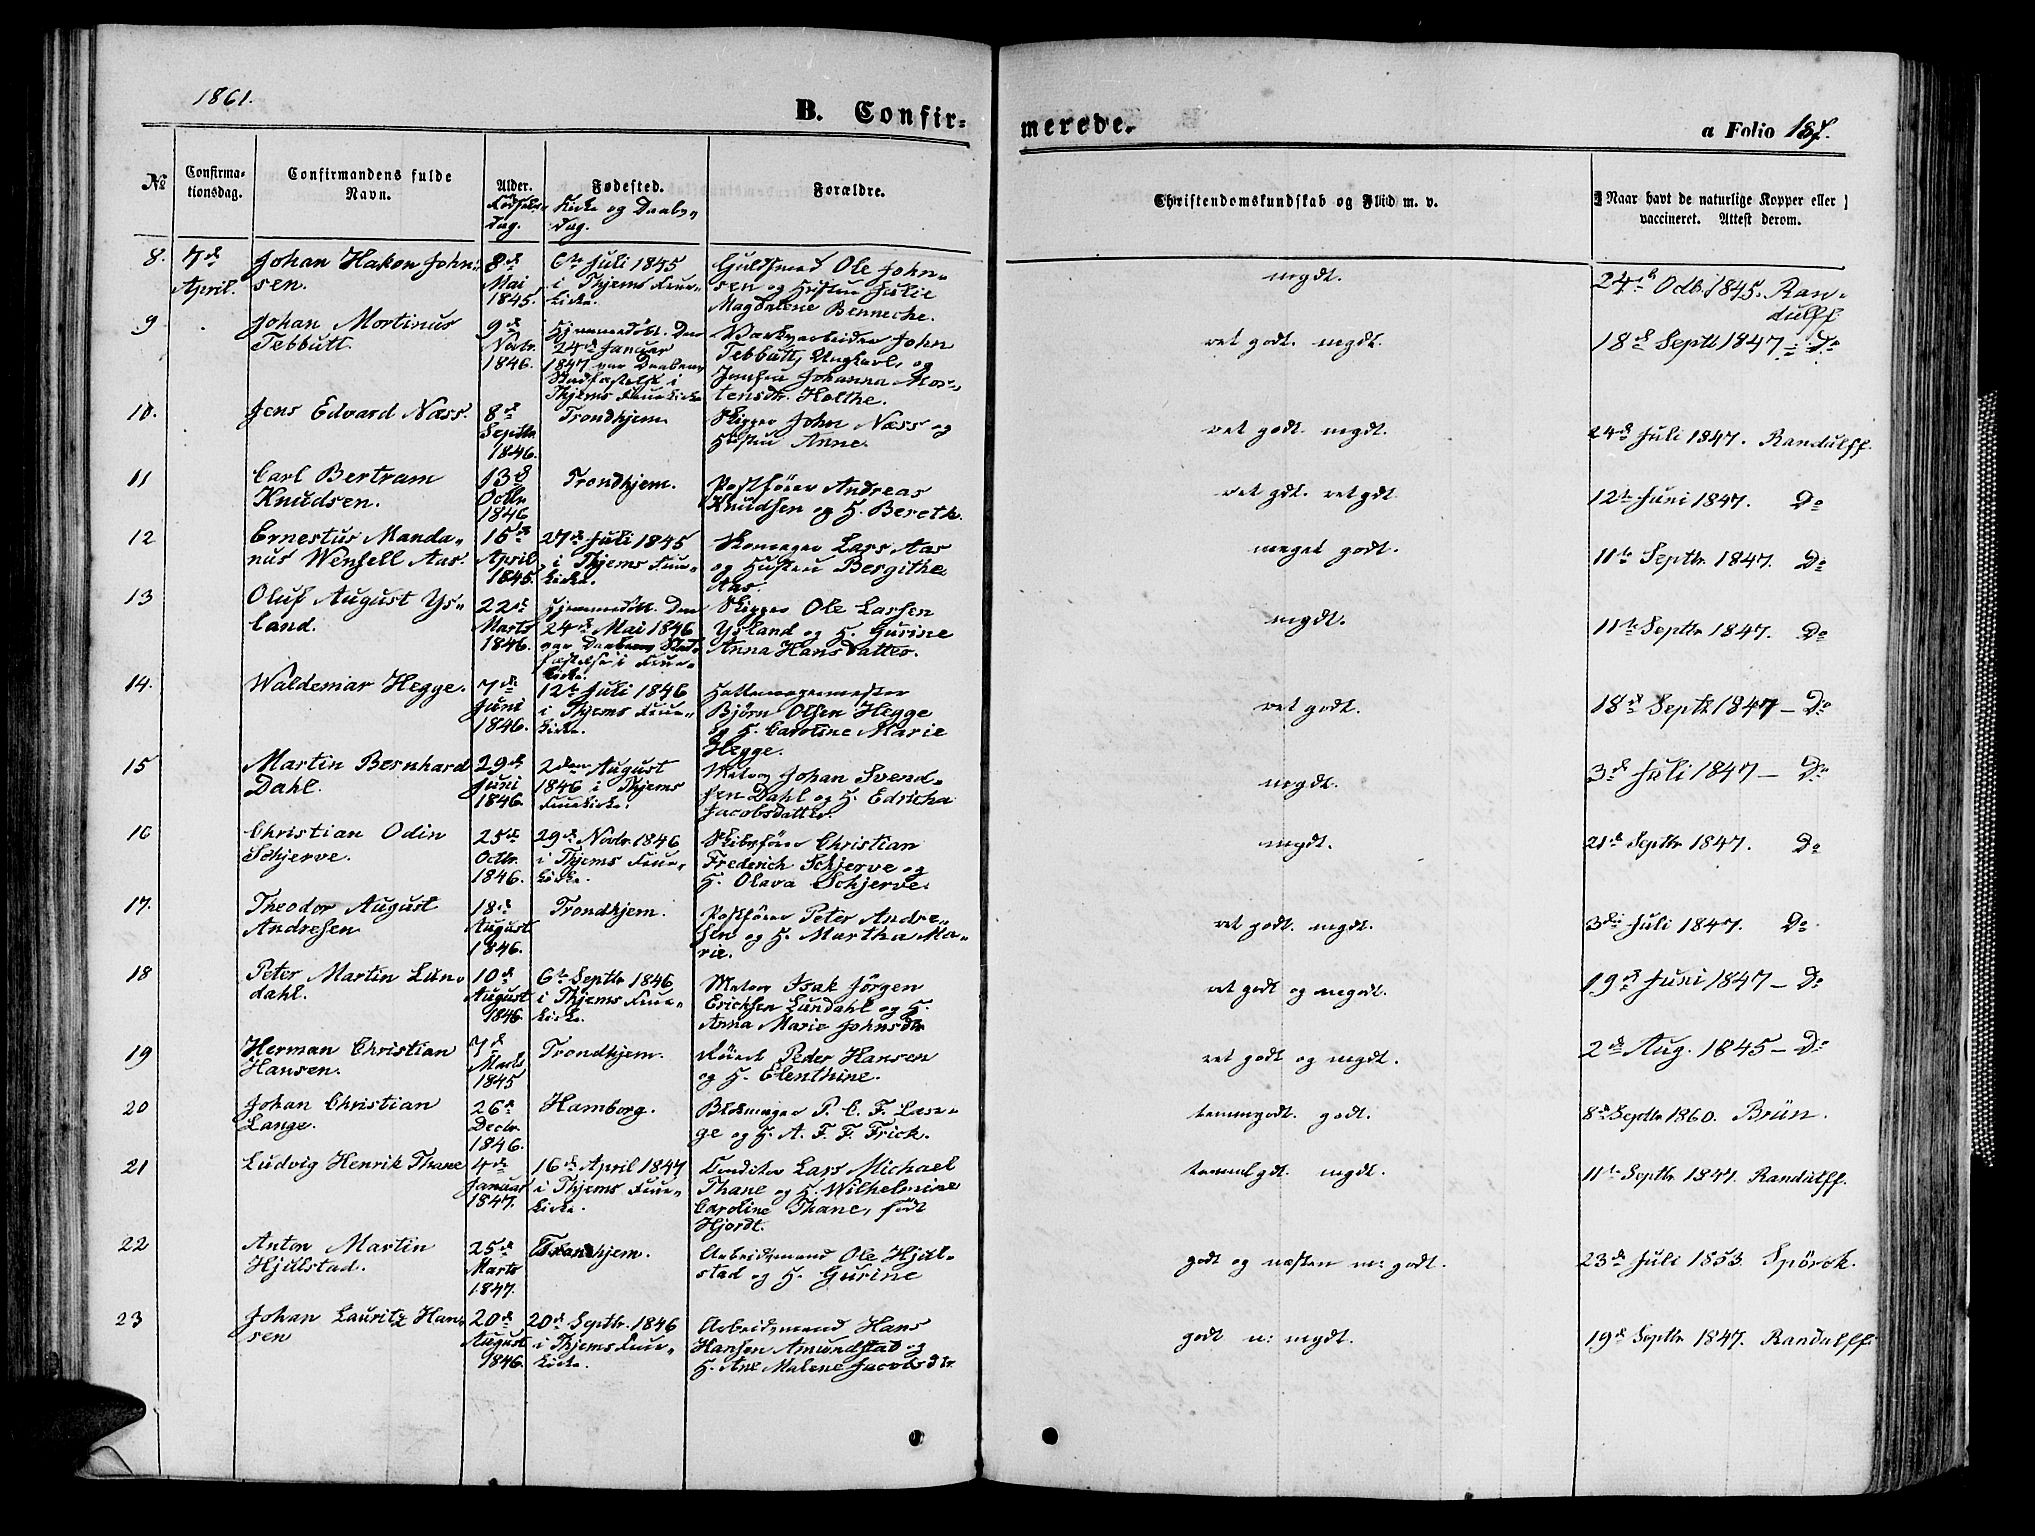 1861.
B. Confir-
merede.
a Folio 187.
No
Confirma-
tionsdag.
Confirmandens fulde
Navn.
Alder.
Fødsels-
dag.
Fødested.
Kirke og Daabs-
dag.
Forældre.
Christendomskundskab og Flid m. v.
Naar havt de naturlige Kopper eller
vaccineret. Attest derom.
8. 7de April. Johan Hakon John-
sen.
8de
Mai
1845.
6te Juli 1845
i Thjems Frue-
kirke.
Guldsmed Ole John-
sen og Hustru Julie
Magdalene Bennecke.
mgdt.
24de Octb. 1845. Ran-
dulff
9 Johan Mortinus
Tebbutt.
9de
Novbr.
1846.
Hjemmedøbt. Den
24de Januar
1847 var Daabens
Stadfæstelse i
Thjems Fruekirke
John
Tebbutt, Ungkarl, og
Johanna Mor-
tensdtr. Holthe.
vet godt. mgdt.
18de Septb 1847 - Do
10. Jens Edvard Næss.
8de
Septbr
1846.
Trondhjem
Skipper John Næss og
Hustru Anne.
vet godt. mgdt.
24de Juli 1847. Randulff.
11 Carl Bertram
Knudsen.
13de
Octbr.
1846
Trondhjem.
Postfører Andreas
Knudsen og H. Bereth.
vet gdt. vet gdt
12te Juni 1847. Do
12 Ernestus Manda-
nus Wensell Aas.
15de
April
1845.
27de Juli 1845
i Thjems Frue-
kirke.
Skomager Lars Aas
og Hustru Bergithe
Aas.
meget godt.
11te Septbr. 1847. Do
13 Oluf August Ys-
land.
22de
Marts
1846.
Hjemmedøbt. Den
24de Mai 1846
var Daabens Stad-
fæstelse i Frue-
kirke.
Skipper Ole Larsen
Ysland og H. Gurine
Anna Hansdatter.
mgdt.
11te Septbr 1847. Do
14. Waldemar Hegge.
7de
Juni
1846.
12te Juli 1846
i Thjems Frue-
kirke.
Hattemagermester
Bjørn Olsen Hegge
og H. Caroline Marie
Hegge.
vet godt.
18de Septb 1847 - Do
15 Martin Bernhard
Dahl.
29de
Juni
1846.
2den August
1846 i Thjems
Fruekirke.
Johan Svend-
sen Dahl og H. Edricha
Jacobsdatter.
mgdt.
3de Juli 1847 - Do
16 Christian Odin
Schjerve.
25de
Octbr.
1846.
29de Novbr. 1846
i Thjems Frue-
kirke.
Skibsfører Christian
Frederich Schjerve og
H. Olava Schjerve.
mgdt.
21de Septbr 1847. Do
17. Theodor August
Andresen
18de
August
1846.
Trondhjem.
Postfører Peter Andre-
sen og H. Martha Ma-
rie.
vet godt. mgdt.
3die Juli 1847. Do
18 Peter Martin Lun-
dahl.
10de
August
1846
6te Septbr 1846
i Thjems Frue-
kirke.
Isak Jørgen
Ericksen Lundahl og H.
Anna Marie Johnsdtr
vet godt og mgodt.
19de Juni 1847 - Do
19 Herman Christian
Hansen.
7de
Marts
1845
Trondhjem.
Peder Hansen
og H. Elenthine.
vet godt og mgdt.
2de Aug. 1845 - Do
20 Johan Christian
Lange.
26de
Decbr.
1846.
Hamborg.
P. C. F. Lan-
ge og H. A. F. F. Frick.
temmgodt. godt.
8de Septbr 1860. Brün.
21 Ludvig Henrik Thane
4de
Januar
1847.
16de April 1847
i Thjems Frue-
kirke.
Conditor Lars Michael
Thane og H. Wilhelmine
Caroline Thane, født
Hjordt.
temmlgdt. mgdt.
11te Septbr 1847. Randulff.
22 Anton Martin
Hjulstad.
25de
Marts
1847.
Trondhjem.
Arbeidsmand Ole Hjul-
stad og H. Gurine
godt og næsten m: godt.
23de Juli 1853. Spørck.
23 Johan Lauritz Han-
sen
20de
August
1846.
20de Septbr. 1846
i Thjems Frue-
kirke.
Arbeidsmand Hans
Hansen Amundstad og
H. Ane Malene Jacobsdtr
godt n: mgdt.
19de Septbr 1847. Randulff